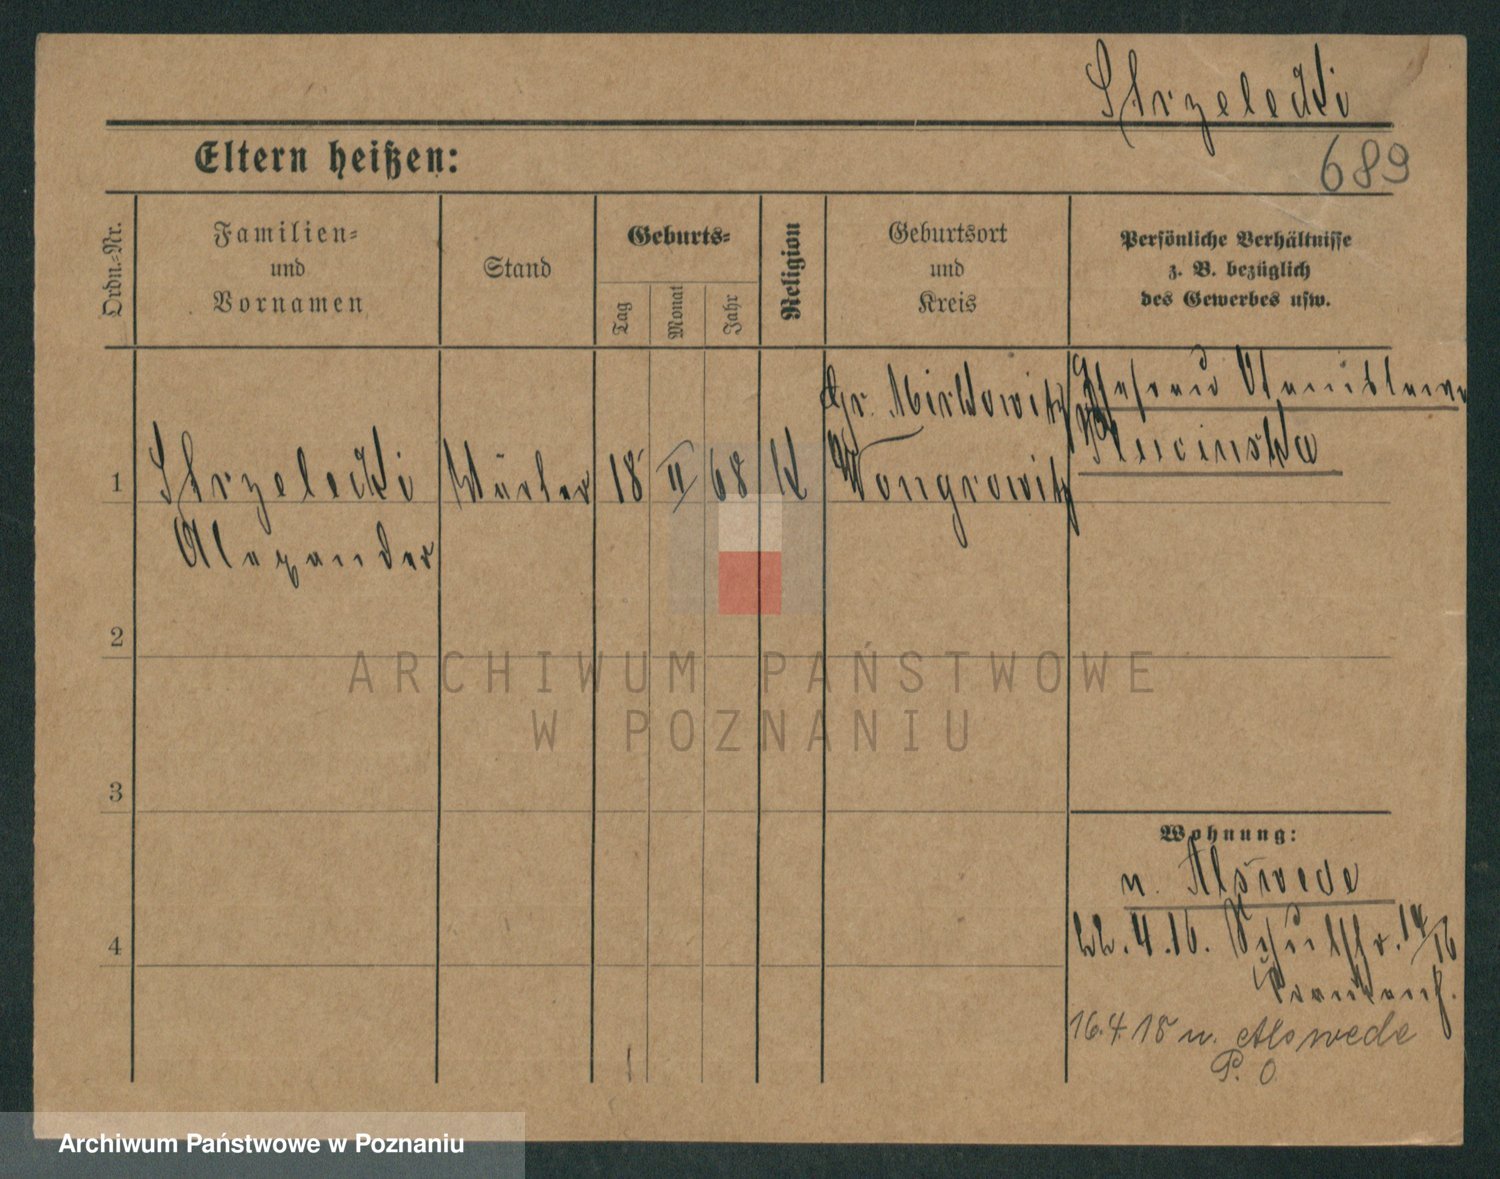 Strzelecki
Eltern heißen:
689
Ordn.-Nr.
Familien-
und
Vornamen
Stand
Geburts-
Tag
Monat
Jahr
Religion
Geburtsort
und
Kreis
Persönliche Verhältnisse
z. B. bezüglich
des Gewerbes usw.
1
Strzelecki
Alexander
18
II
68
K
Gr. Mirkowitz
Wongrowitz
Ehefrau Stanislawa
Plucinska
2
3
4
Wohnung:
n. Alswede
22.4.16. Schulstr. 14/16
Krankenh.
16.4.18 n. Alswede
P. O
ARCHIWUM PAŃSTWOWE
W POZNANIU
Archiwum Państwowe w Poznaniu